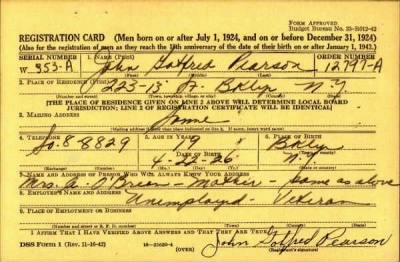 FORM APPROVED
Budget Bureau No. 33-R012-42
REGISTRATION CARD (Men born on or after July 1, 1924, and on or before December 31, 1924)
(Also for the registration of men as they reach the 18th anniversary of the date of their birth on or after January 1, 1943.)
SERIAL NUMBER 1. NAME (Print) ORDER NUMBER
W 353-A John Gotfred Pearson 12797-A
(First) (Middle) (Last)
2. PLACE OF RESIDENCE (Print)
223-15 St. Bklyn N.Y.
(Number and street) (Town, township, village, or city) (County) (State)
[THE PLACE OF RESIDENCE GIVEN ON LINE 2 ABOVE WILL DETERMINE LOCAL BOARD
JURISDICTION; LINE 2 OF REGISTRATION CERTIFICATE WILL BE IDENTICAL]
3. MAILING ADDRESS
Same
[Mailing address if other than place indicated on line 2. If same, insert word same]
4. TELEPHONE 5. AGE IN YEARS 6. PLACE OF BIRTH
So. 8-8829 19 Bklyn
DATE OF BIRTH
4-22-26 N.Y.
(Exchange) (Number) (Mo.) (Day) (Yr.) (State or country)
7. NAME AND ADDRESS OF PERSON WHO WILL ALWAYS KNOW YOUR ADDRESS
Mrs. A. - Mother - Same as above
8. EMPLOYER'S NAME AND ADDRESS
Unemployed - Veteran
9. PLACE OF EMPLOYMENT OR BUSINESS
(Number and street or R. F. D. number) (Town) (County) (State)
I AFFIRM THAT I HAVE VERIFIED ABOVE ANSWERS AND THAT THEY ARE TRUE.
DSS FORM 1 (Rev. 11-16-42) (OVER) John Gotfred Pearson
(Registrant's signature)